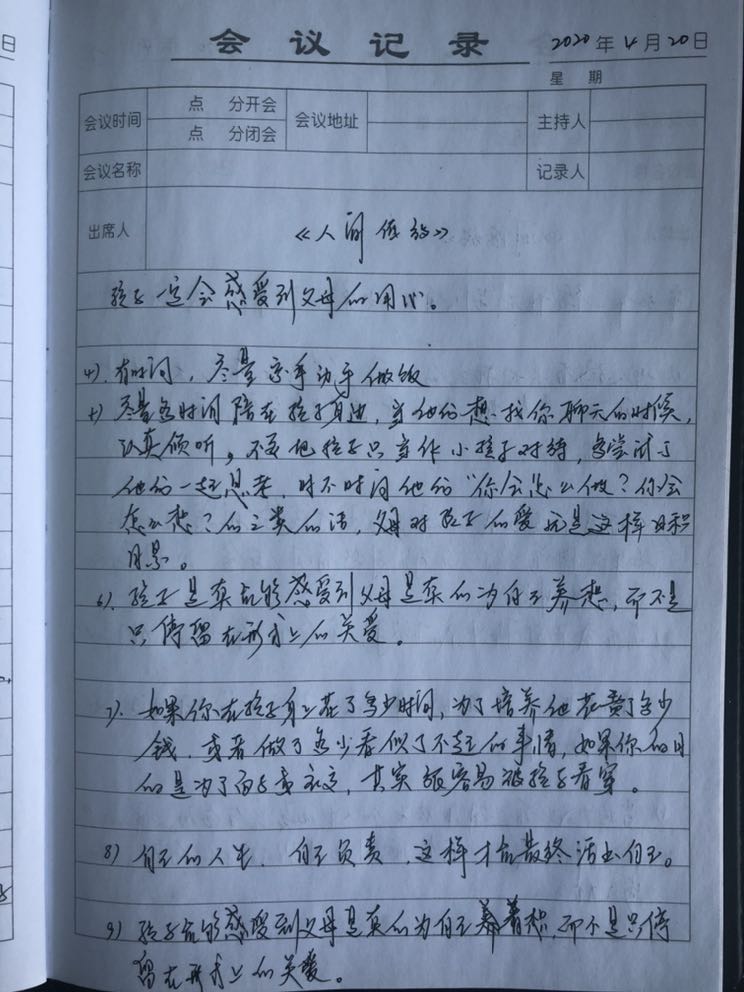 会议记录 2020年4月20日
星期
会议时间 点 分开会 会议地址 主持人
点 分闭会
会议名称 记录人
出席人 《人间值得》
孩子一定会感受到父母的用心。
4). 有时间，尽量亲手动手做饭
5) 尽量多时间陪在孩子身边，当他们想找你聊天的时候，
认真倾听。不要把孩子只当作小孩子对待，多尝试与
他们一起思考，时不时问他们“你会怎么做？你会
怎么想？的之类的话，父母对孩子的爱就是这样日积
月累。
6). 孩子是真能够感受到父母是真的为自己着想，而不是
只停留在形式上的关爱。
7). 如果你在孩子身上花了多少时间，为了培养他花费了多少
钱，或者做了多少看似了不起的事情，如果你的目
的是为了面子或社交，其实很容易被孩子看穿。
8) 自己的人生，自己负责，这样才能最终活出自己。
9) 孩子能够感受到父母是真的为自己着想，而不是只停
留在形式上的关爱。